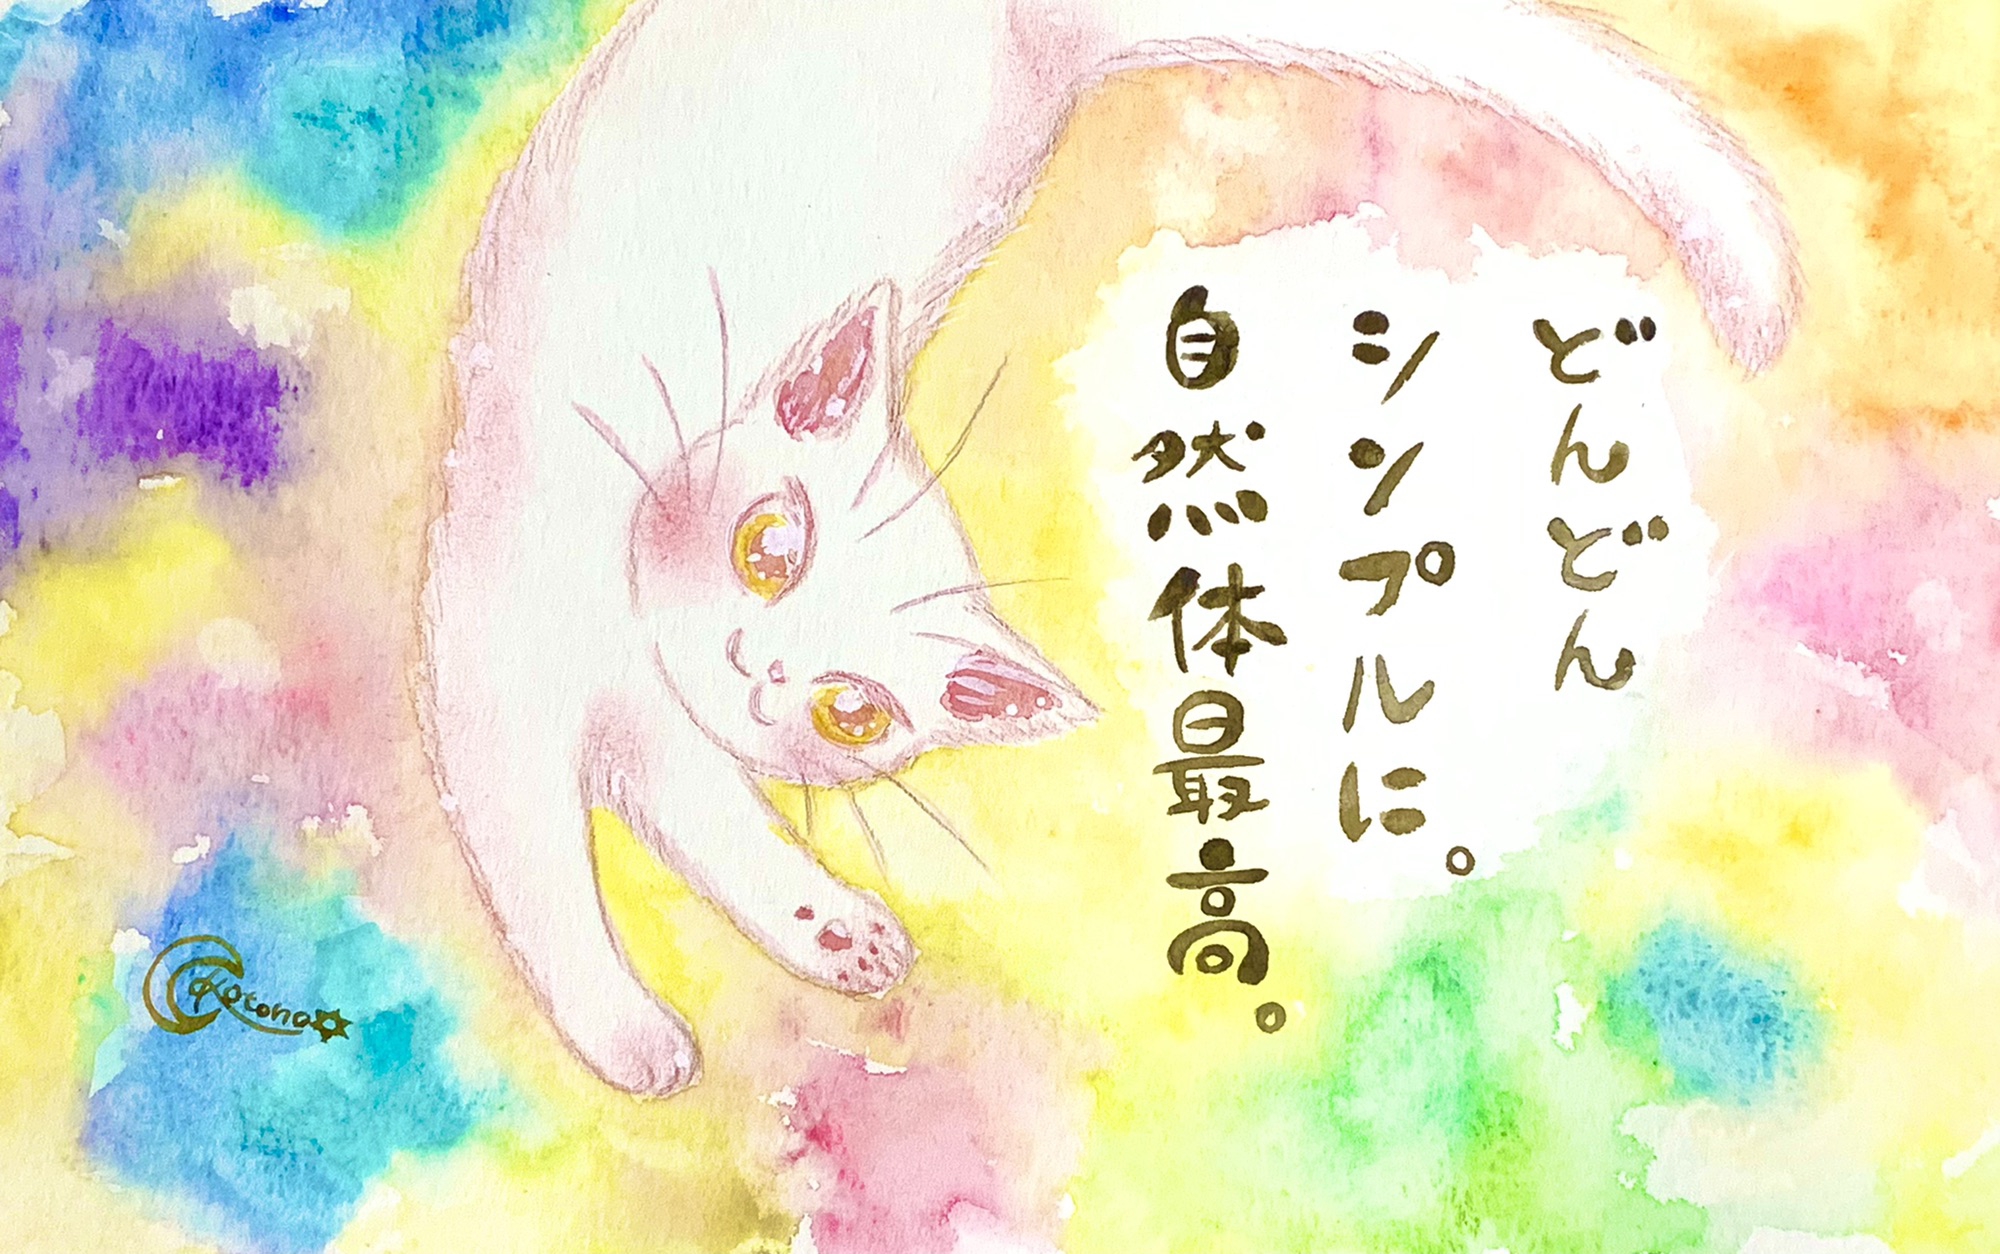 どんどん
シンプルに。
自然体最高。
Kotona